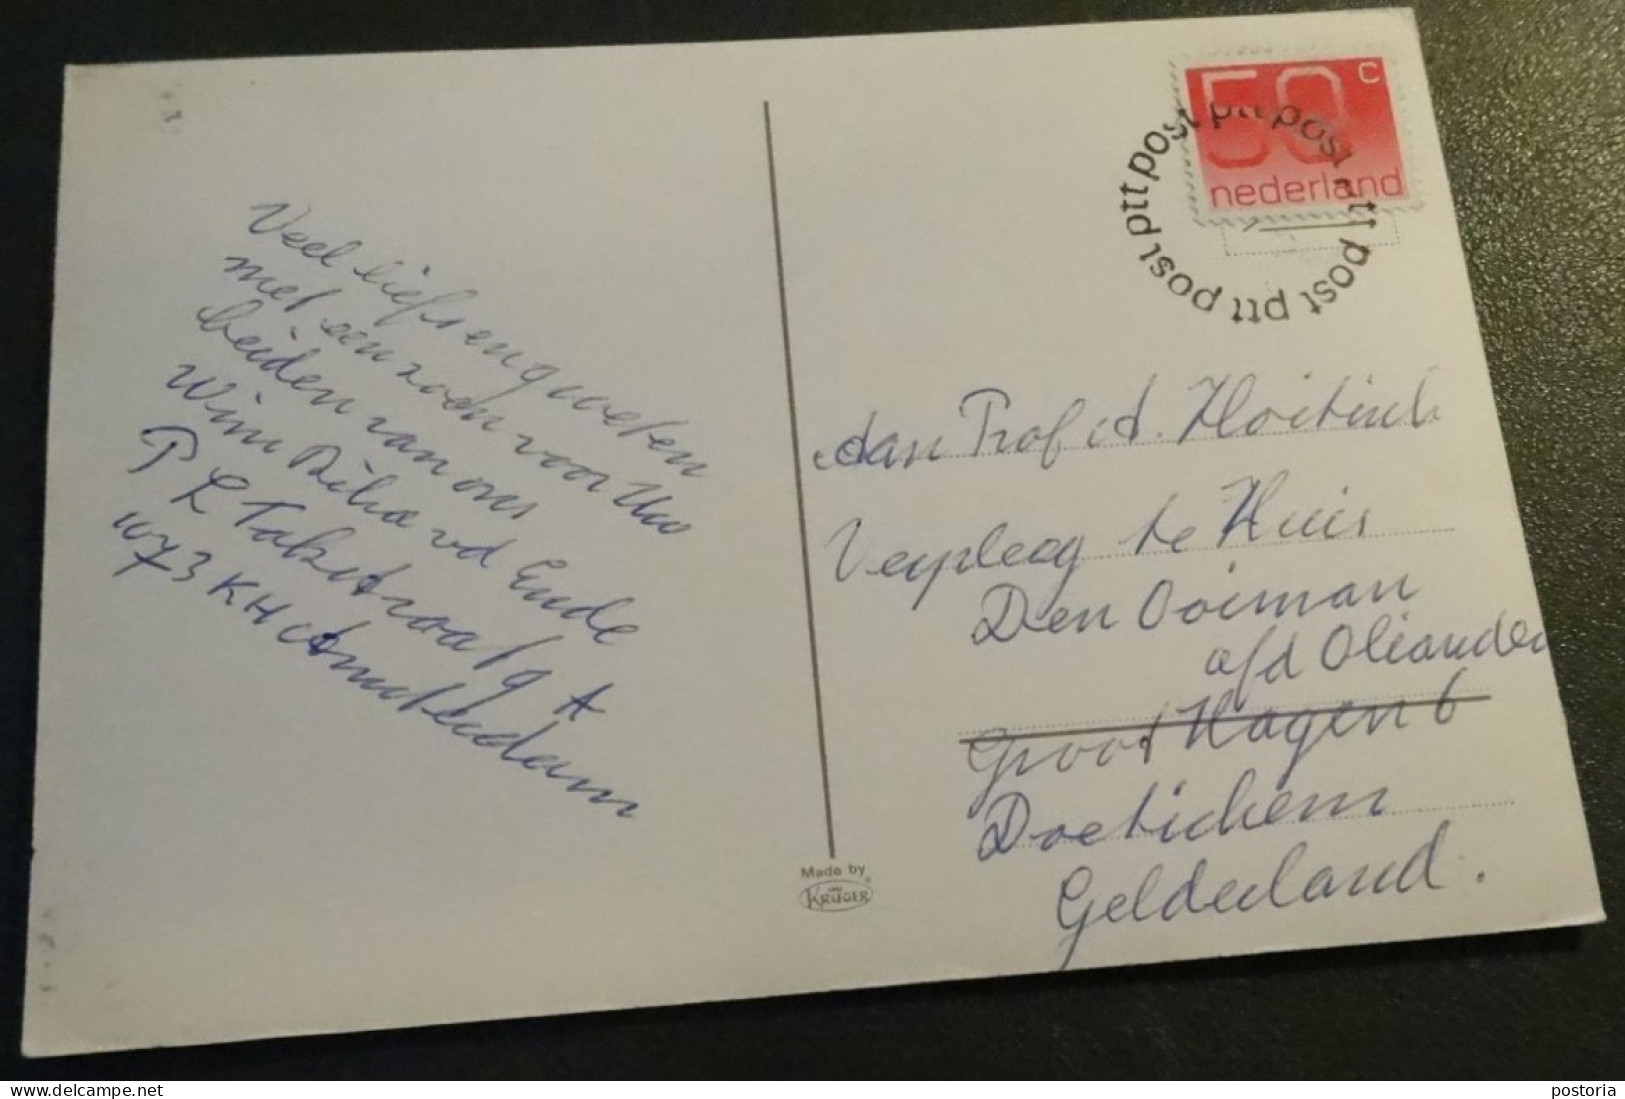 Veel liefs en groeten
met een zoen voor Uw
beiden van ons
Wim Riha vd Ende
P L Takstraat 9 A
1073 KH Amsterdam
Made by
van
KRÜGER
50 c
nederland
ptt post ptt post ptt post ptt post ptt post
Aan Prof A. Hoitink
Verpleeg te Huis
Den Ooiman
afd Oliander
Groot Hagen 6
Doetichem
Gelderland.
postoria
https://www.delcampe.net/en_GB/collectables/user/postoria